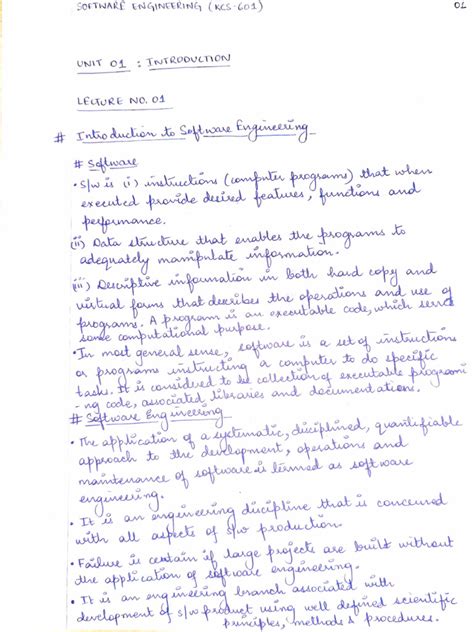 SOFTWARE ENGINEERING (KCS-601)
01
UNIT 01 : INTRODUCTION
LECTURE NO. 01
# Introduction to Software Engineering
# Software
• S/w is (i) instructions (computer programs) that when
executed provide desired features, functions and
performance.
(ii) Data structure that enables the programs to
adequately manipulate information.
(iii) Descriptive information in both hard copy and
virtual forms that describes the operations and use of
programs. A program is an executable code, which serves
some computational purpose.
• In most general sense, software is a set of instructions
or programs instructing a computer to do specific
tasks. It is considered to be collection of executable programi
-ng code, associated libraries and documentations.
# Software Engineering
• The application of a systematic, disciplined, quantifiable
approach to the development, operations and
maintenance of software is termed as software
engineering.
• It is an engineering discipline that is concerned
with all aspects of s/w production
• Failure is certain if large projects are built without
the application of software engineering.
• It is an engineering branch associated with
development of s/w product using well defined scientific
principles, methods & procedures.